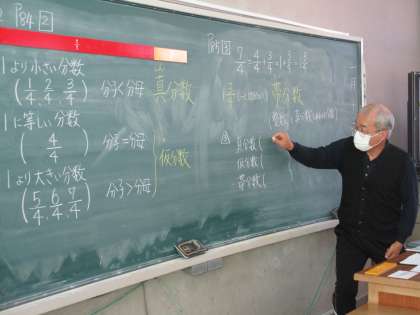 P84 2
1より小さい分数
(1/4, 2/4, 3/4) 分子<分母 真分数
1に等しい分数
(4/4) 分子=分母
1より大きい分数
(5/4, 6/4, 7/4) 分子>分母
仮分数
P85 図
7/4 = 4/4 + 3/4 = 1 + 3/4 = 1 3/4
帯分数
真分数(
仮分数(
帯分数(